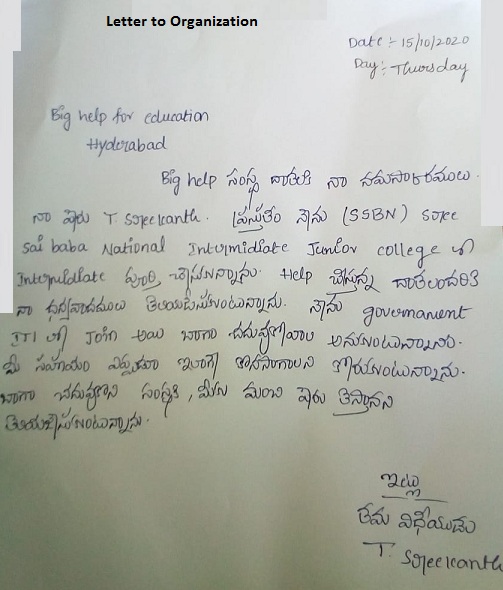 Letter to Organization
Date :- 15/10/2020
Day :- Thursday
Big help for education
Hyderabad
Big help సంస్థ దాతలకి నా నమసాకారములు.
నా పేరు T Sreekanth. ప్రస్తుతం నేను (SSBN) Sree
Sai baba National Intermidiate Junior college లో
పూర్తి చేసుకున్నాను. Help చేస్తున్న దాతలందరికి
నా ధన్యవాదములు తెలియచేసుకుంటున్నాను. నేను government
ITI లో John అయి బాగా చదువుకోవాలి అనుకుంటున్నాను.
మీ సహాయం ఎప్పుడూ ఇలాగే కొనసాగాలని కోరుకుంటున్నాను.
బాగా చదువుకొని సంస్థకి, మీకు మంచి పేరు తెస్తానని
తెలియచేసుకుంటున్నాను.
ఇట్లు
తమ విధేయుడు
T. Sreekanth